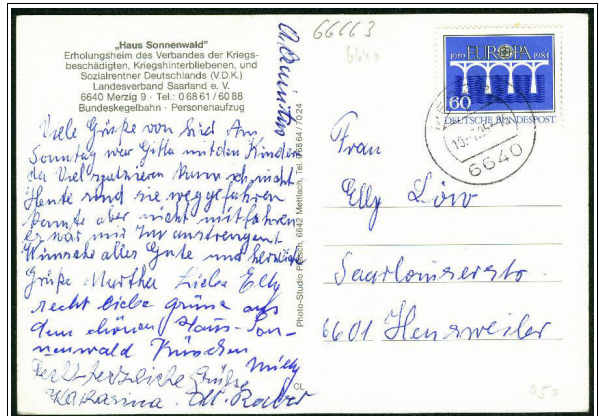 „Haus Sonnenwald"
Erholungsheim des Verbandes der Kriegs-
beschädigten, Kriegshinterbliebenen, und
Sozialrentner Deutschlands (V.D.K.)
Landesverband Saarland e. V.
6640 Merzig 9 · Tel.: 0 68 61 / 60 88
Bundeskegelbahn · Personenaufzug
Viele Grüße von hier Am
Sonntag war Gitta mit den Kinder
da Viel spazieren kann ich nicht
Heute sind sie weggefahren
konnte aber nicht mitfahren
es war mir zu anstrengent
Wünsche alles Gute und herzliche
Grüße Martha Liebe Elly
recht liebe Grüße aus
dem schönen Haus-Son-
nenwald Küsschen
Milly
Recht herzliche Grüße
Katharina
Photo-Studio Mettlach, 6642 Mettlach, Tel. 06864/7024
CL
66663
6640
1959 EUROPA 1984
60
DEUTSCHE BUNDESPOST
6640
Frau
Elly Löw
Saarlouiserstr.
6601 Heusweiler
050